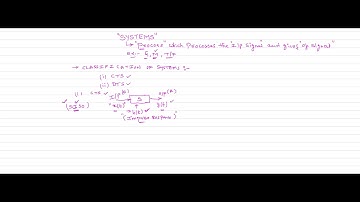 "SYSTEMS"
↳ "Process" which Processes the "I/p signal" and gives "o/p signal"
→ CLASSIFICATION OF SYSTEMS :-
(i) CTS
(ii) DTS
(i) CTS I/p(t) S o/p(t)
(SISO) "x(t)" y(t)
h(t)
(Impulse Response)